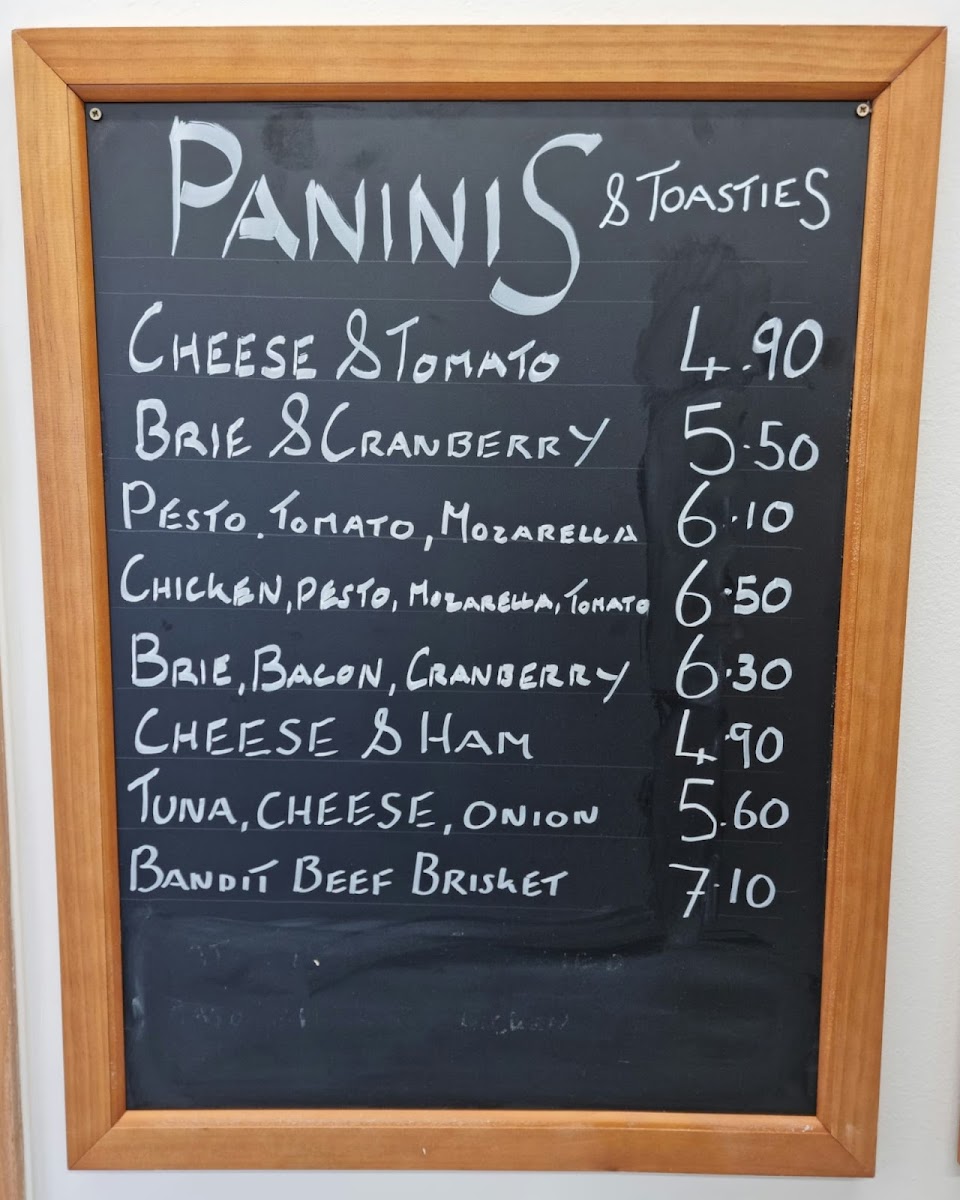 PANINIS & TOASTIES
CHEESE & TOMATO 4.90
BRIE & CRANBERRY 5.50
PESTO, TOMATO, MOZARELLA 6.10
CHICKEN, PESTO, MOZARELLA, TOMATO 6.50
BRIE, BACON, CRANBERRY 6.30
CHEESE & HAM 4.90
TUNA, CHEESE, ONION 5.60
BANDIT BEEF BRISKET 7.10